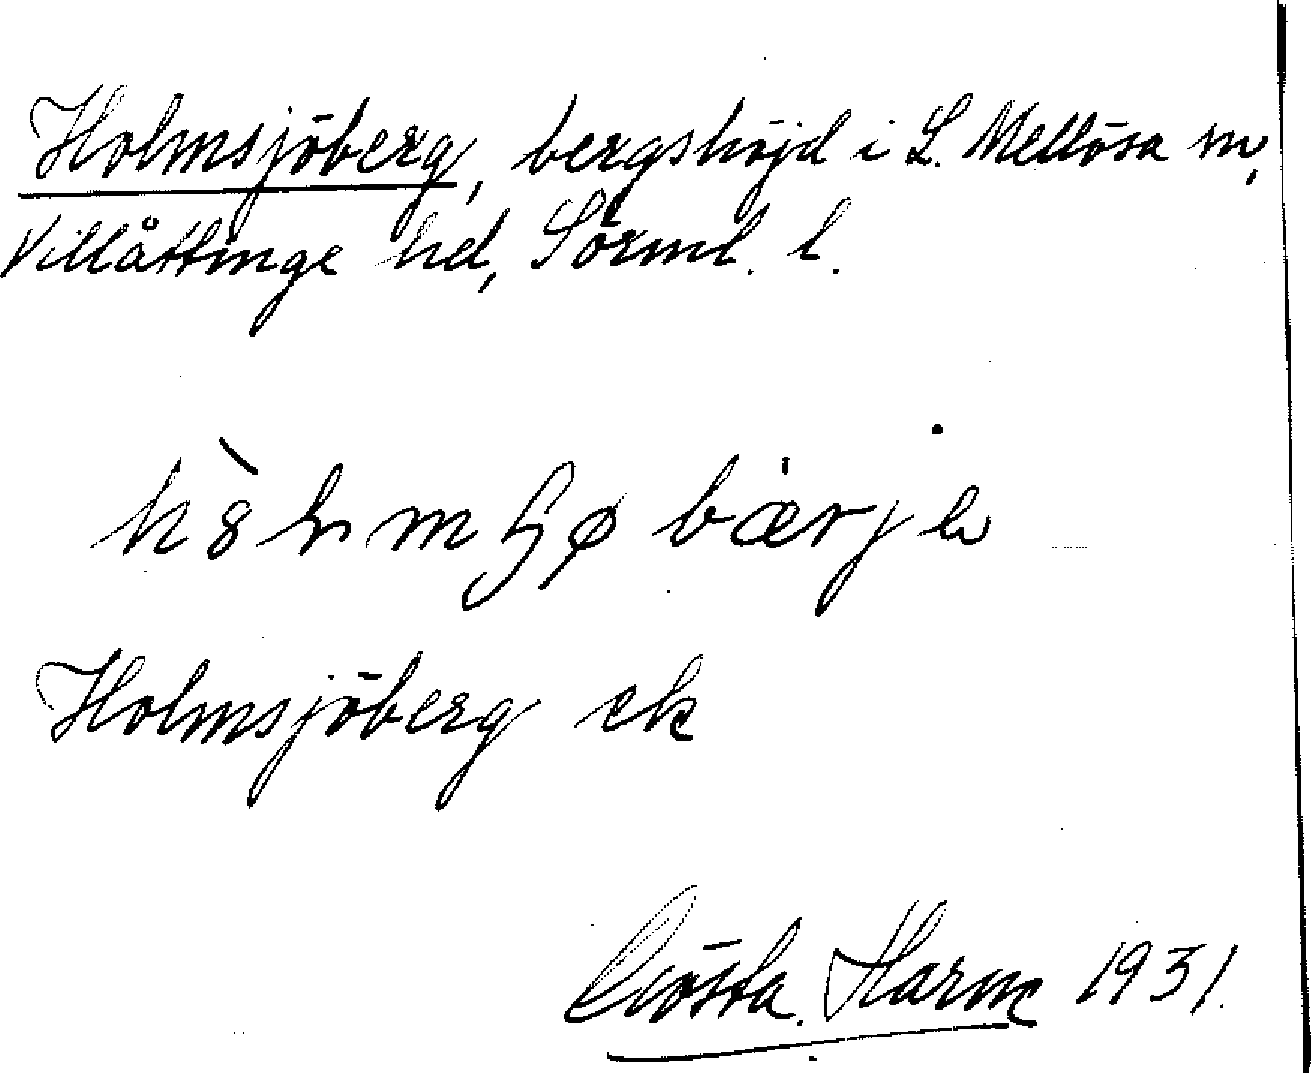 Holmsjöberg, bergshöjd i L. Mellösa sn,
Villåttinge hd, Sörml. l.
Holmsjöberg ek
Gösta. Harne 1931.